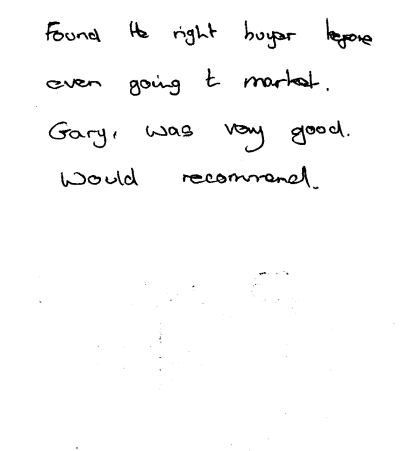 Found the right buyer before
even going to market.
Gary, was very good.
Would recommend.